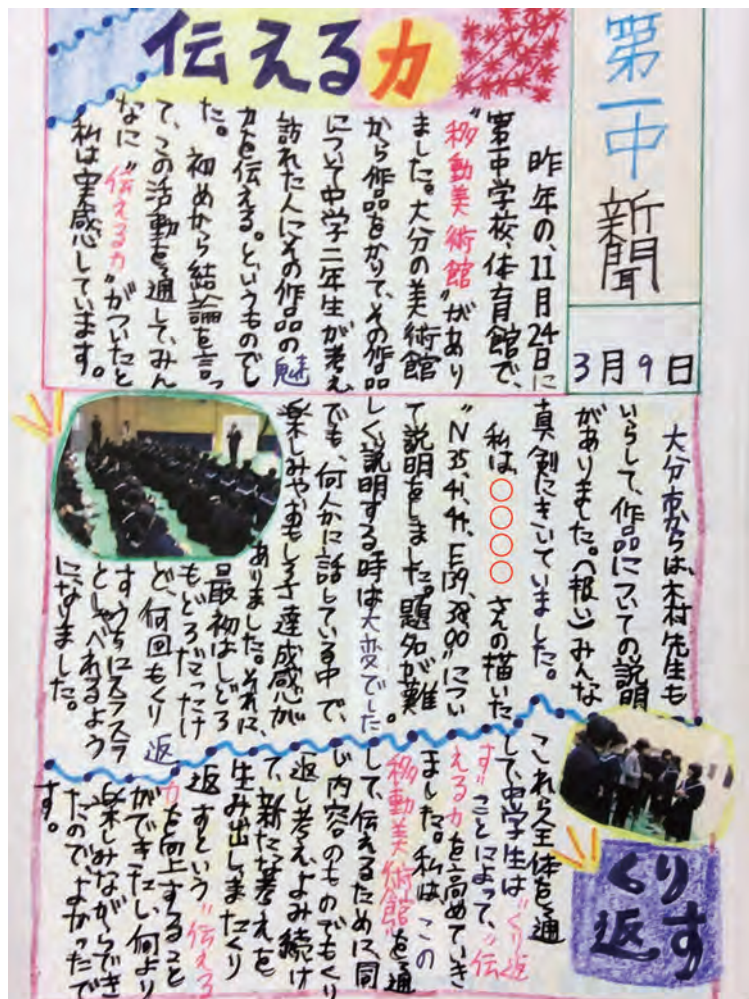 第一中新聞
3月9日
伝える力
昨年の、11月24日に
第一中学校、体育館で、
"移動美術館"があり
ました。大分の美術館
から作品をかりて、その作品
について中学二年生が考え
訪れた人にその作品の魅
力を伝える。というものでし
た。初めから結論を言っ
て、この活動を通して、みん
なに"伝えるカ"がついたと
私は実感しています。
大分市からは、木村先生も
いらして、作品についての説明
がありました。(報い)みんな
真剣にきいていました。
私は、○○○○さんの描いた
"N35,41,44、E139,38,00"につい
て説明をしました。題名が難
しく説明する時は大変でした。
でも、何人かに話している中で、
楽しみやおもしろさ達成感が
ありました。それに、
最初はしどろ
もどろだったけ
ど、何回もくり返
すうちにスラスラ
としゃべれるよう
になりました。
くり返す
これら全体を通
して、中学生は"くり返
す"ことによって、"伝
える力を高めていき
ました。私は、この
移動美術館"を通
して、伝えるために同
じ内容のものでもくり
返し考え、よみ続け
て、新たな考えを
生み出し、またくり
返すという"伝える
力を向上すること
ができたし、何より
楽しみながらでき
たので、よかったで
す。